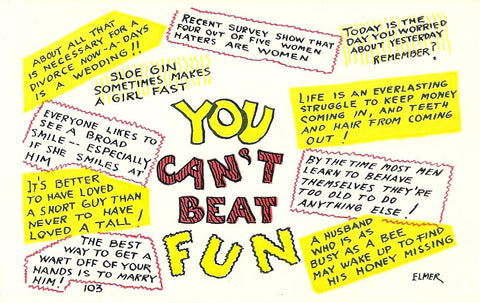 ABOUT ALL THAT
IS NECESSARY FOR A
DIVORCE NOW-A-DAYS
IS A WEDDING!!
RECENT SURVEY SHOW THAT
FOUR OUT OF FIVE WOMEN
HATERS ARE WOMEN
TODAY IS THE
DAY YOU WORRIED
ABOUT YESTERDAY
REMEMBER?
SLOE GIN
SOMETIMES MAKES
A GIRL FAST
LIFE IS AN EVERLASTING
STRUGGLE TO KEEP MONEY
COMING IN, AND TEETH
AND HAIR FROM COMING
OUT!
EVERYONE LIKES TO
SEE A BROAD
SMILE -- ESPECIALLY
IF SHE SMILES AT
HIM
YOU
CAN'T
BEAT
FUN
BY THE TIME MOST MEN
LEARN TO BEHAVE
THEMSELVES THEY'RE
TOO OLD TO DO
ANYTHING ELSE!
IT'S BETTER
TO HAVE LOVED
A SHORT GUY THAN
NEVER TO HAVE
LOVED A TALL!
A HUSBAND
WHO IS AS
BUSY AS A BEE
MAY WAKE UP TO FIND
HIS HONEY MISSING
THE BEST
WAY TO GET A
WART OFF OF YOUR
HANDS IS TO MARRY
HIM!
103
ELMER